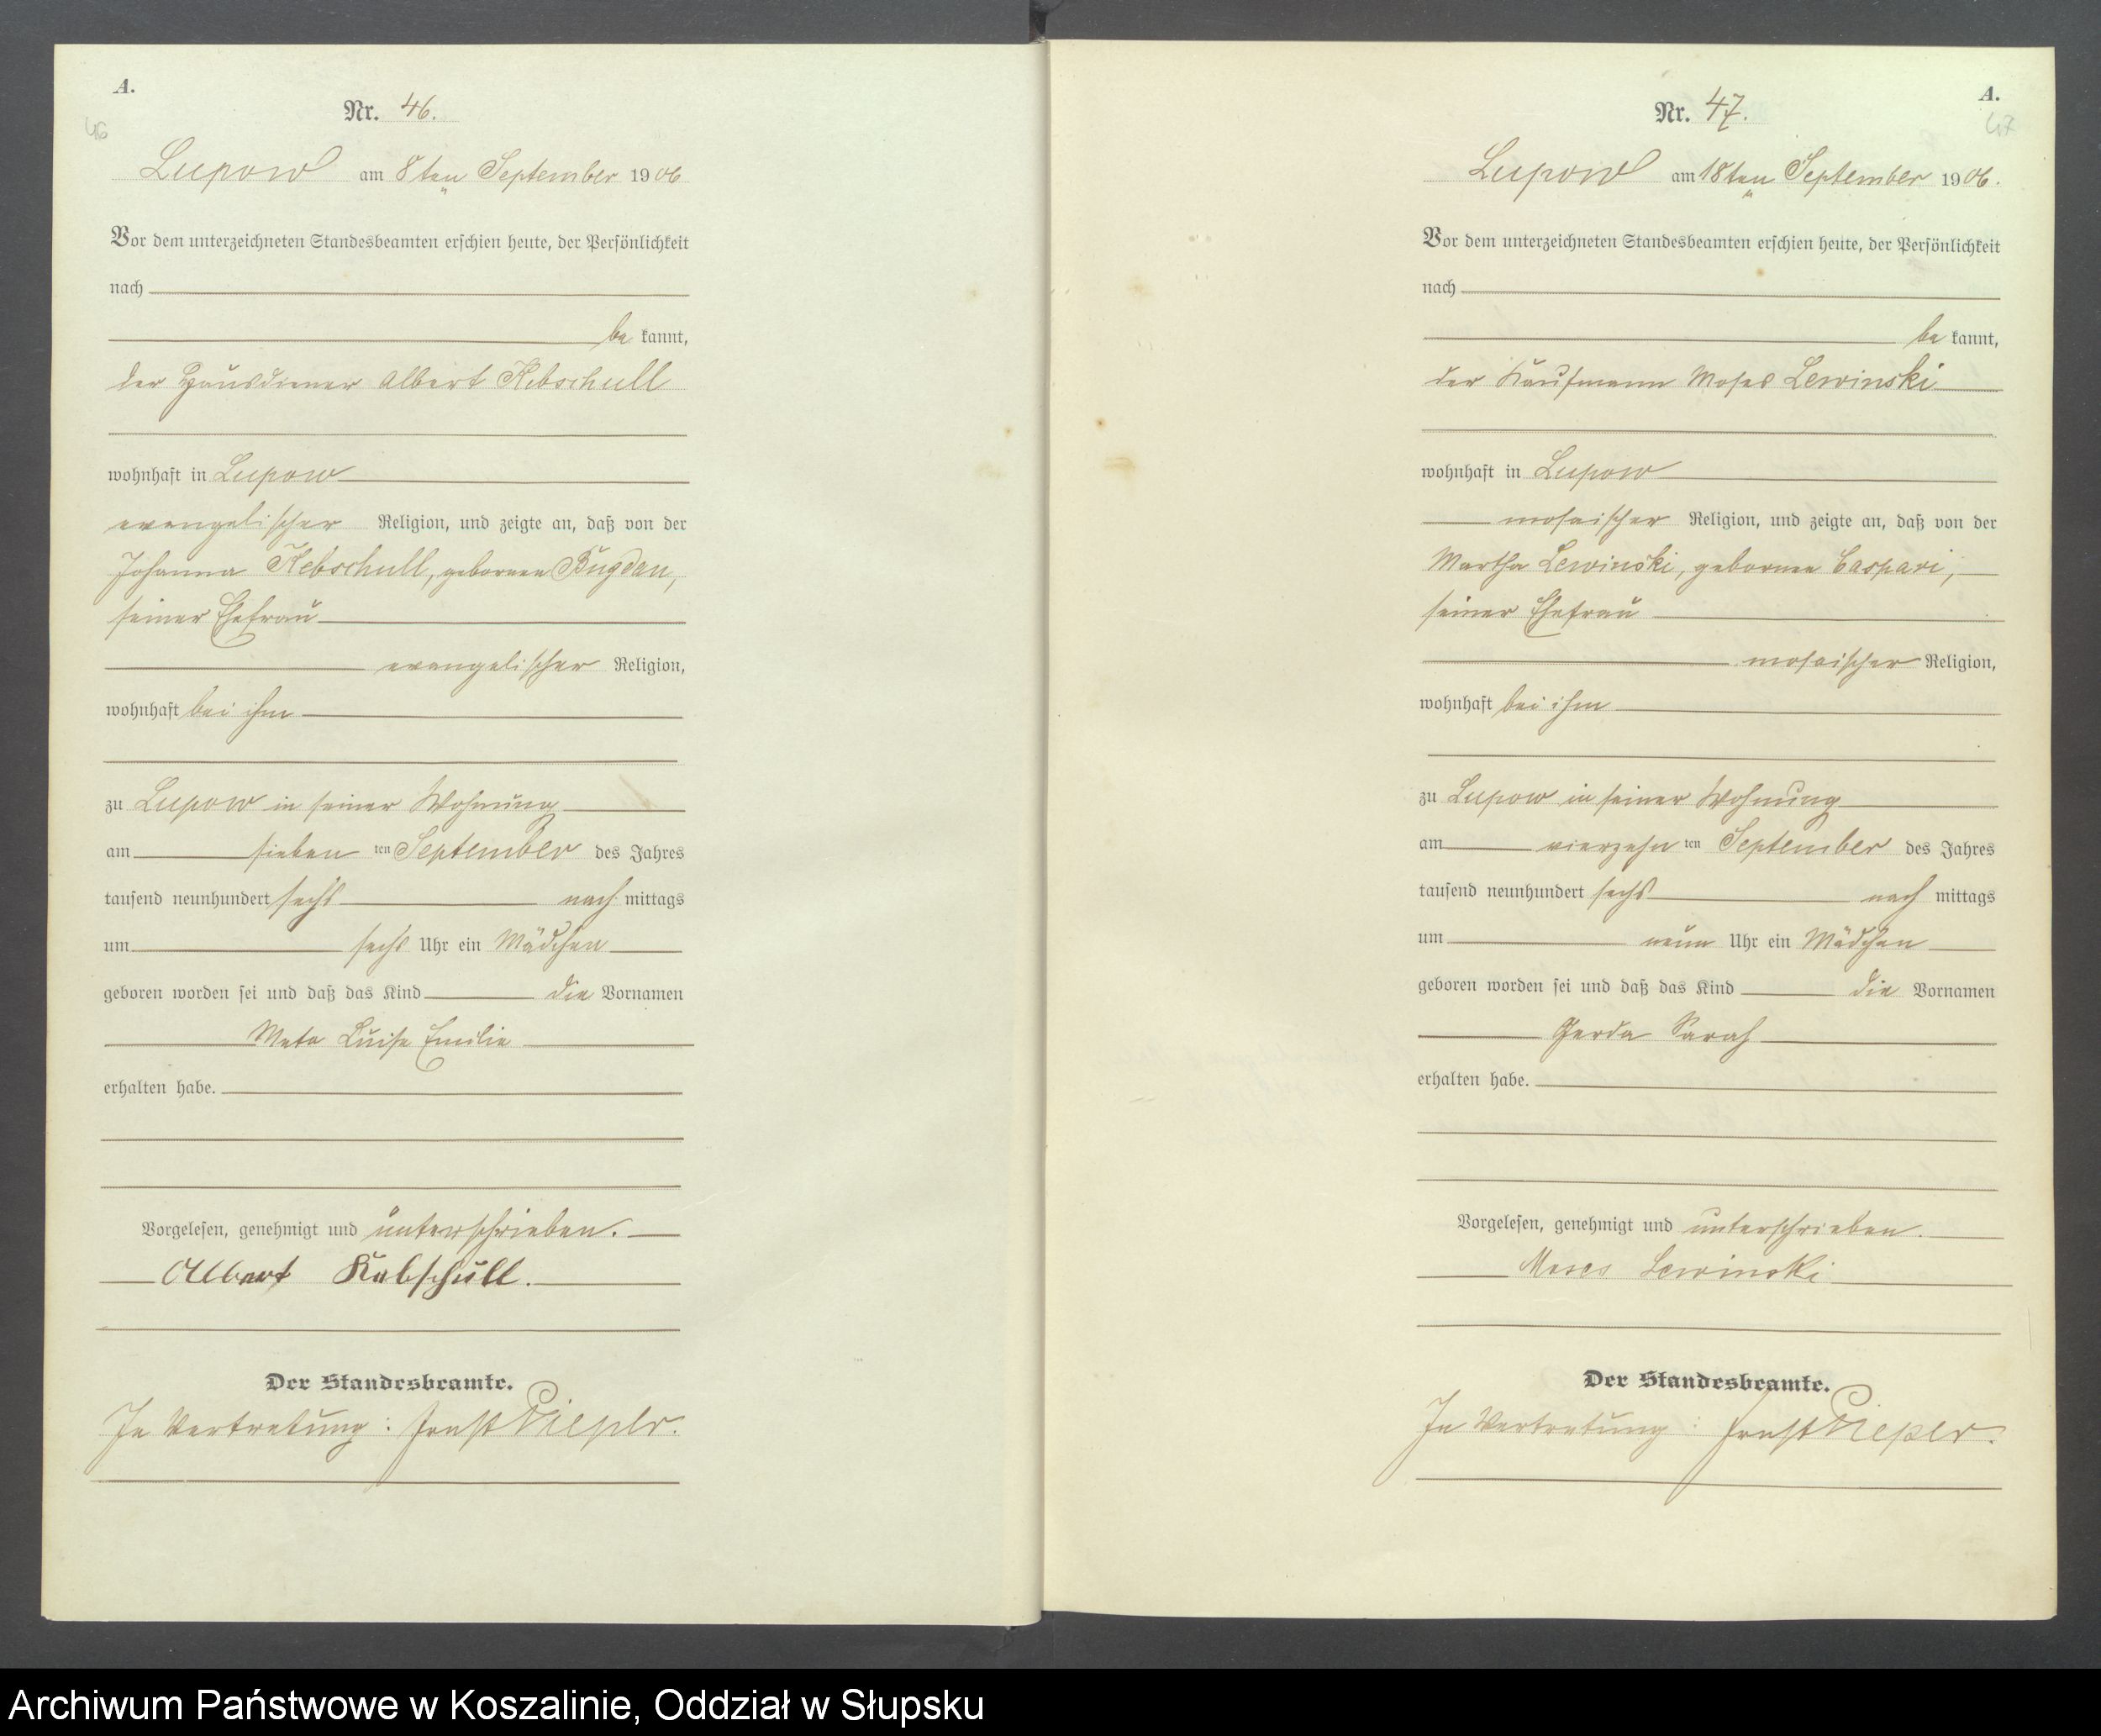 A.
46
Nr. 46.
Lupow am 8ten September 1906
Vor dem unterzeichneten Standesbeamten erschien heute, der Persönlichkeit
nach
be kannt,
der Hausdiener Albert Kebschull
wohnhaft in Lupow
evangelischer Religion, und zeigte an, daß von der
Johanna Kebschull, geborenen Bugdan,
seiner Ehefrau
evangelischer Religion,
wohnhaft bei ihm
zu Lupow in seiner Wohnung
am sieben ten September des Jahres
tausend neunhundert sechs nach mittags
um sechs Uhr ein Mädchen
geboren worden sei und daß das Kind die Vornamen
Meta Luise Emilie
erhalten habe.
Vorgelesen, genehmigt und unterschrieben.
Albert Kebschull.
Der Standesbeamte.
In Vertretung: Ernst Pieper.
A.
47
Nr. 47.
Lupow am 18ten September 1906.
Vor dem unterzeichneten Standesbeamten erschien heute, der Persönlichkeit
nach
be kannt,
der Kaufmann Moses Lewinski
wohnhaft in Lupow
mosaischer Religion, und zeigte an, daß von der
Martha Lewinski, geborene Caspari,
seiner Ehefrau
mosaischer Religion,
wohnhaft bei ihm
zu Lupow in seiner Wohnung
am vierzehn ten September des Jahres
tausend neunhundert sechs nach mittags
um neun Uhr ein Mädchen
geboren worden sei und daß das Kind die Vornamen
Gerda Sarah
erhalten habe.
Vorgelesen, genehmigt und unterschrieben.
Moses Lewinski
Der Standesbeamte.
In Vertretung: Ernst Pieper.
Archiwum Państwowe w Koszalinie, Oddział w Słupsku